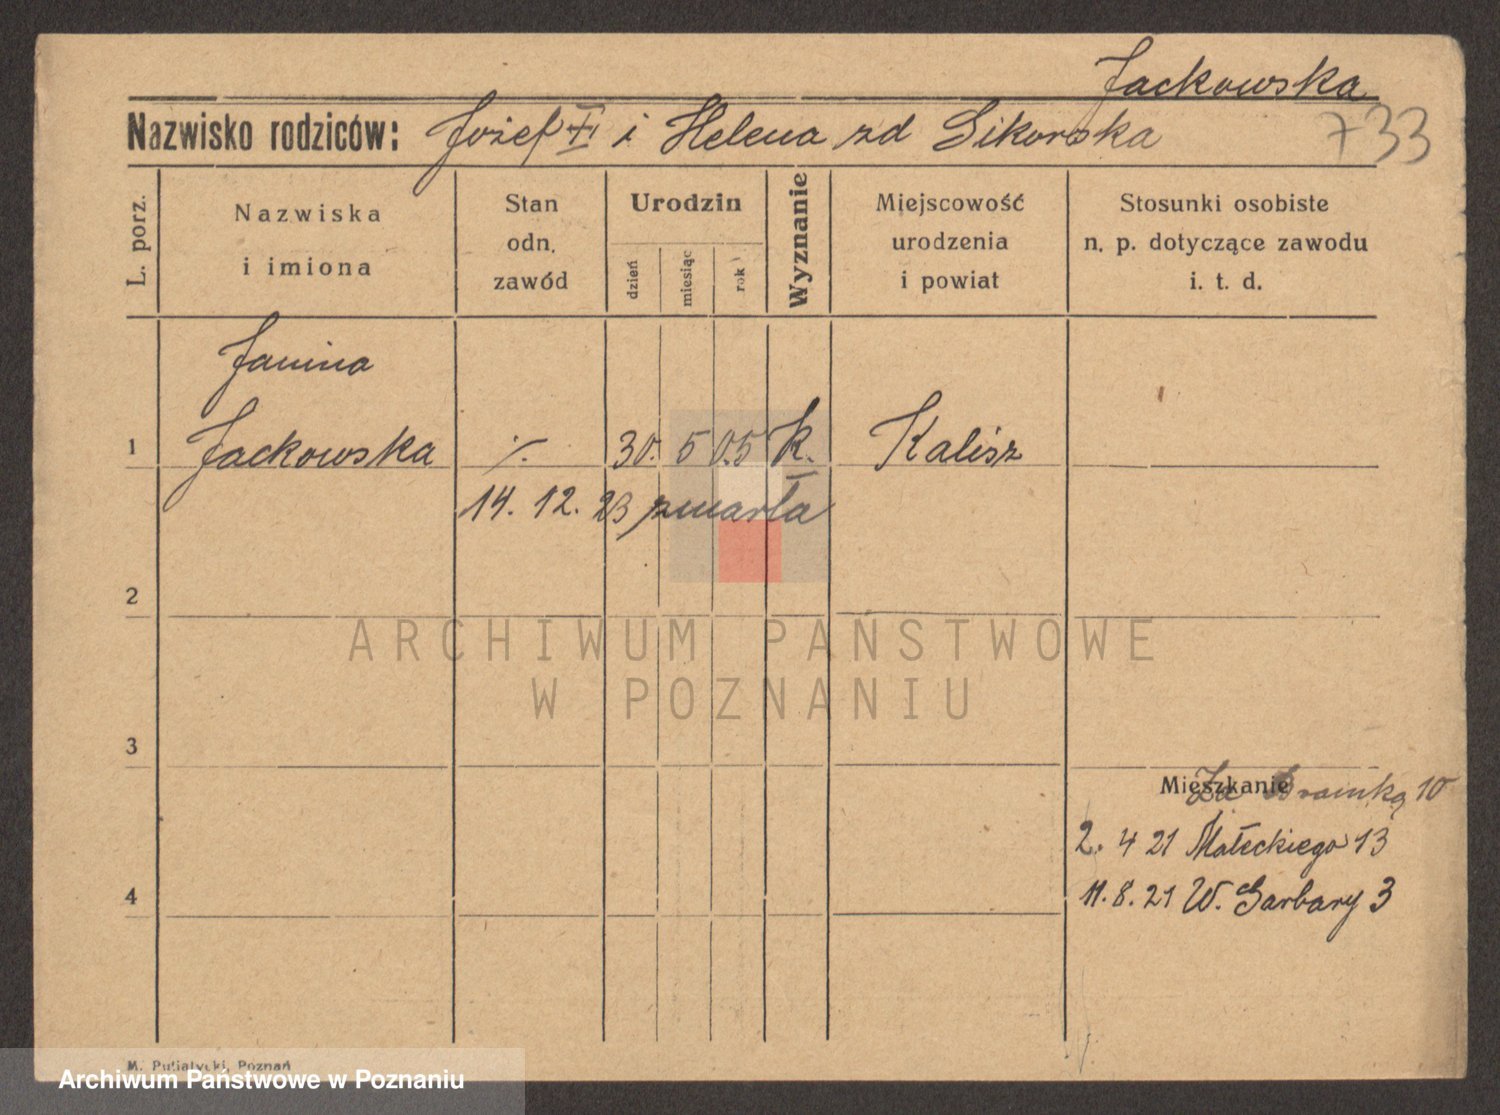 Jackowska
Nazwisko rodziców: Józef i Helena zd Sikorska
733
L. porz.
Nazwiska
i imiona
Stan
odn.
zawód
Urodzin
dzień
miesiąc
rok
Wyznanie
Miejscowość
urodzenia
i powiat
Stosunki osobiste
n. p. dotyczące zawodu
i. t. d.
Janina
1 Jackowska ./. 30. 5 05 k. Kalisz
14. 12. 23 zmarła
2
ARCHIWUM PAŃSTWOWE
W POZNANIU
3
Mieszkanie
Za Bramką 10
2. 4 21 Małeckiego 13
4
11. 8. 21 W. Garbary 3
M. Putiatycki, Poznań
Archiwum Państwowe w Poznaniu